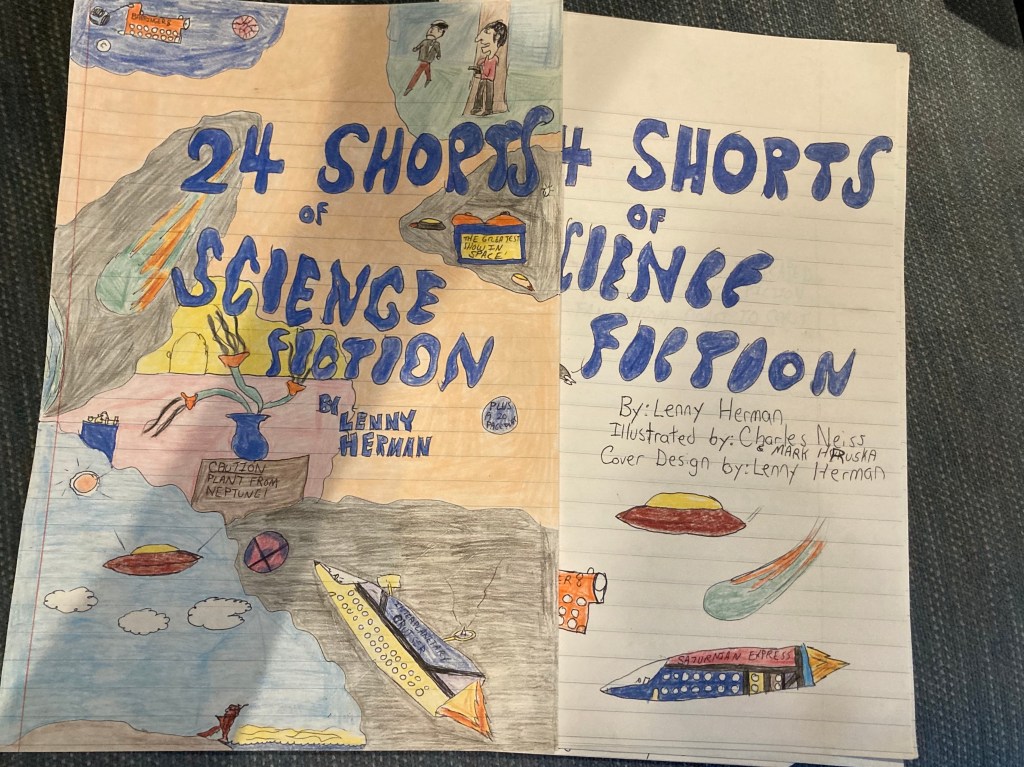 24 SHORTS
OF
SCIENCE
FICTION
BY
LENNY
HERMAN
PLUS
A 20
THE GREATEST
SHOW IN
SPACE!
CAUTION
PLANT FROM
NEPTUNE!
INTERPLANETARY
CRUISER
4 SHORTS
OF
CIENCE
FICTION
By: Lenny Herman
Illustrated by: Charles Neiss
& MARK HRUSKA
Cover Design by: Lenny Herman
SATURNIAN EXPRESS